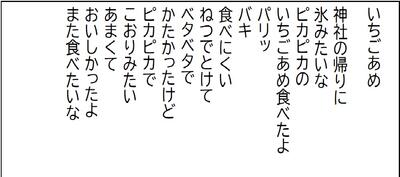 いちごあめ
神社の帰りに
氷みたいな
ピカピカの
いちごあめ食べたよ
パリッ
バキ
食べにくい
ねつでとけて
ベタベタで
かたかったけど
ピカピカで
こおりみたい
あまくて
おいしかったよ
また食べたいな